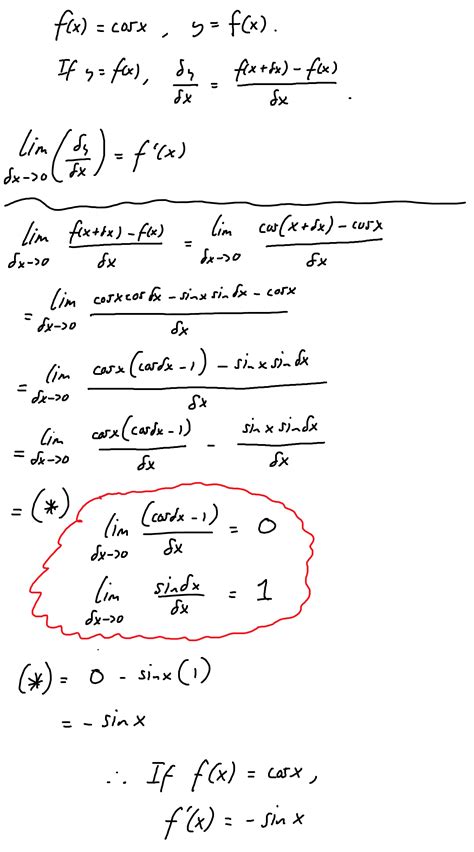 f(x) = cosx , y = f(x).
If y = f(x), δy/δx = (f(x+δx) - f(x))/δx .
lim δx->0 (δy/δx) = f'(x)
lim δx->0 (f(x+δx) - f(x))/δx = lim δx->0 (cos(x+δx) - cosx)/δx
= lim δx->0 (cosxcosδx - sinx sinδx - cosx)/δx
= lim δx->0 (cosx(cosδx - 1) - sinx sinδx)/δx
= lim δx->0 cosx(cosδx - 1)/δx - sinx sinδx/δx
= (*)
lim δx->0 (cosδx - 1)/δx = 0
lim δx->0 sinδx/δx = 1
(*) = 0 - sinx(1)
= - sinx
∴ If f(x) = cosx,
f'(x) = - sinx